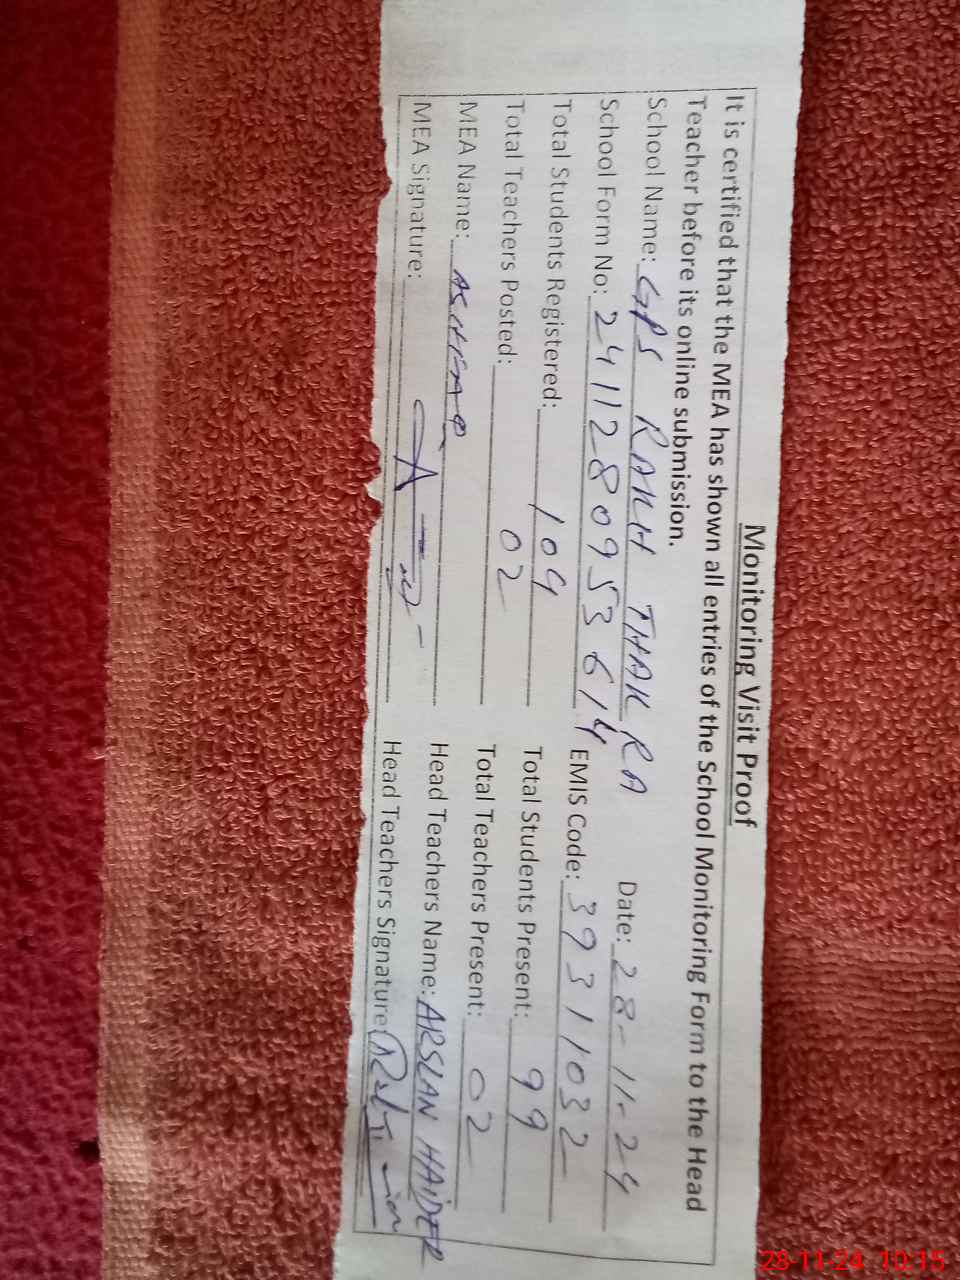 Monitoring Visit Proof
It is certified that the MEA has shown all entries of the School Monitoring Form to the Head
Teacher before its online submission.
School Name: GPS RAKH THAKRA Date: 28-11-24
School Form No: 241128095361 4 EMIS Code: 39311032
Total Students Registered: 109 Total Students Present: 99
Total Teachers Posted: 02 Total Teachers Present: 02
MEA Name: ASHFAQ Head Teachers Name: ARSLAN HAIDER
MEA Signature: Head Teachers Signature
28-11-24 10:15